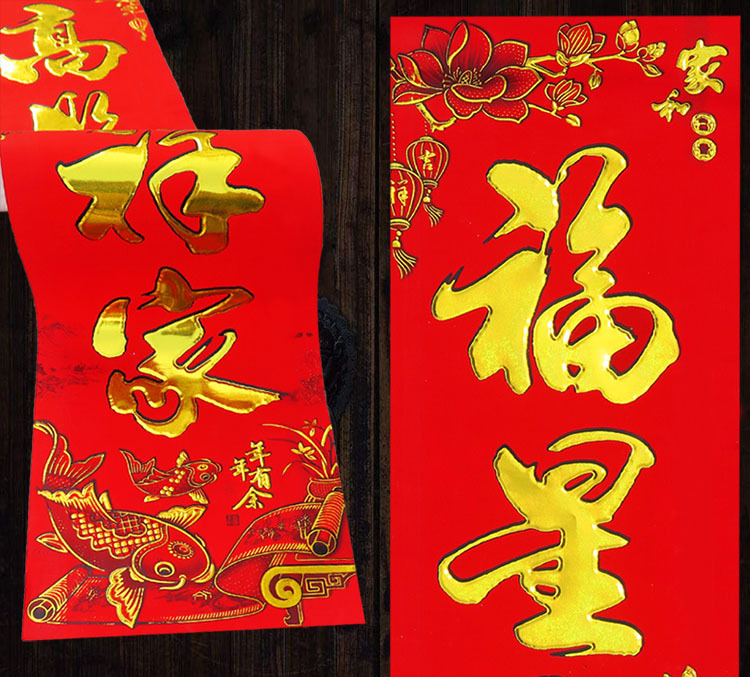 高
祥家
年年有余
家和
吉祥
福星